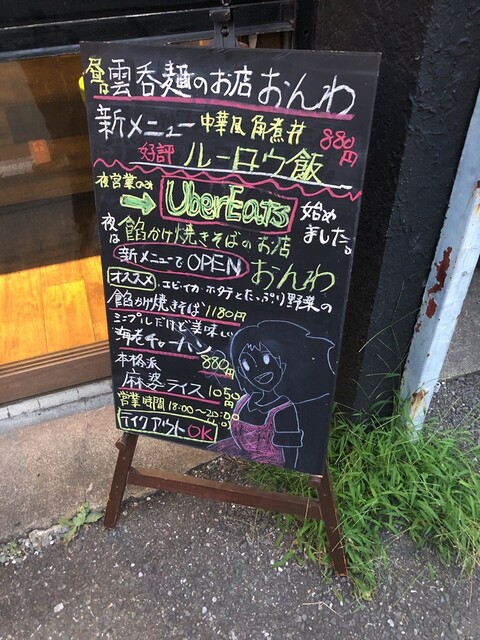 昼は雲呑麺のお店おんわ
新メニュー 中華風角煮丼 880円
好評 ルーロウ飯
夜営業のみ
→ UberEats 始めました。
夜は餡かけ焼きそばのお店
新メニューでOPEN おんわ
オススメ ・エビ・イカ・ホタテとたっぷり野菜の
餡かけ焼きそば 1180円
シンプルだけど美味しい
海老チャーハン 880円
本格派
麻婆ライス 1050円
営業時間 18:00〜20:00
テイクアウトOK